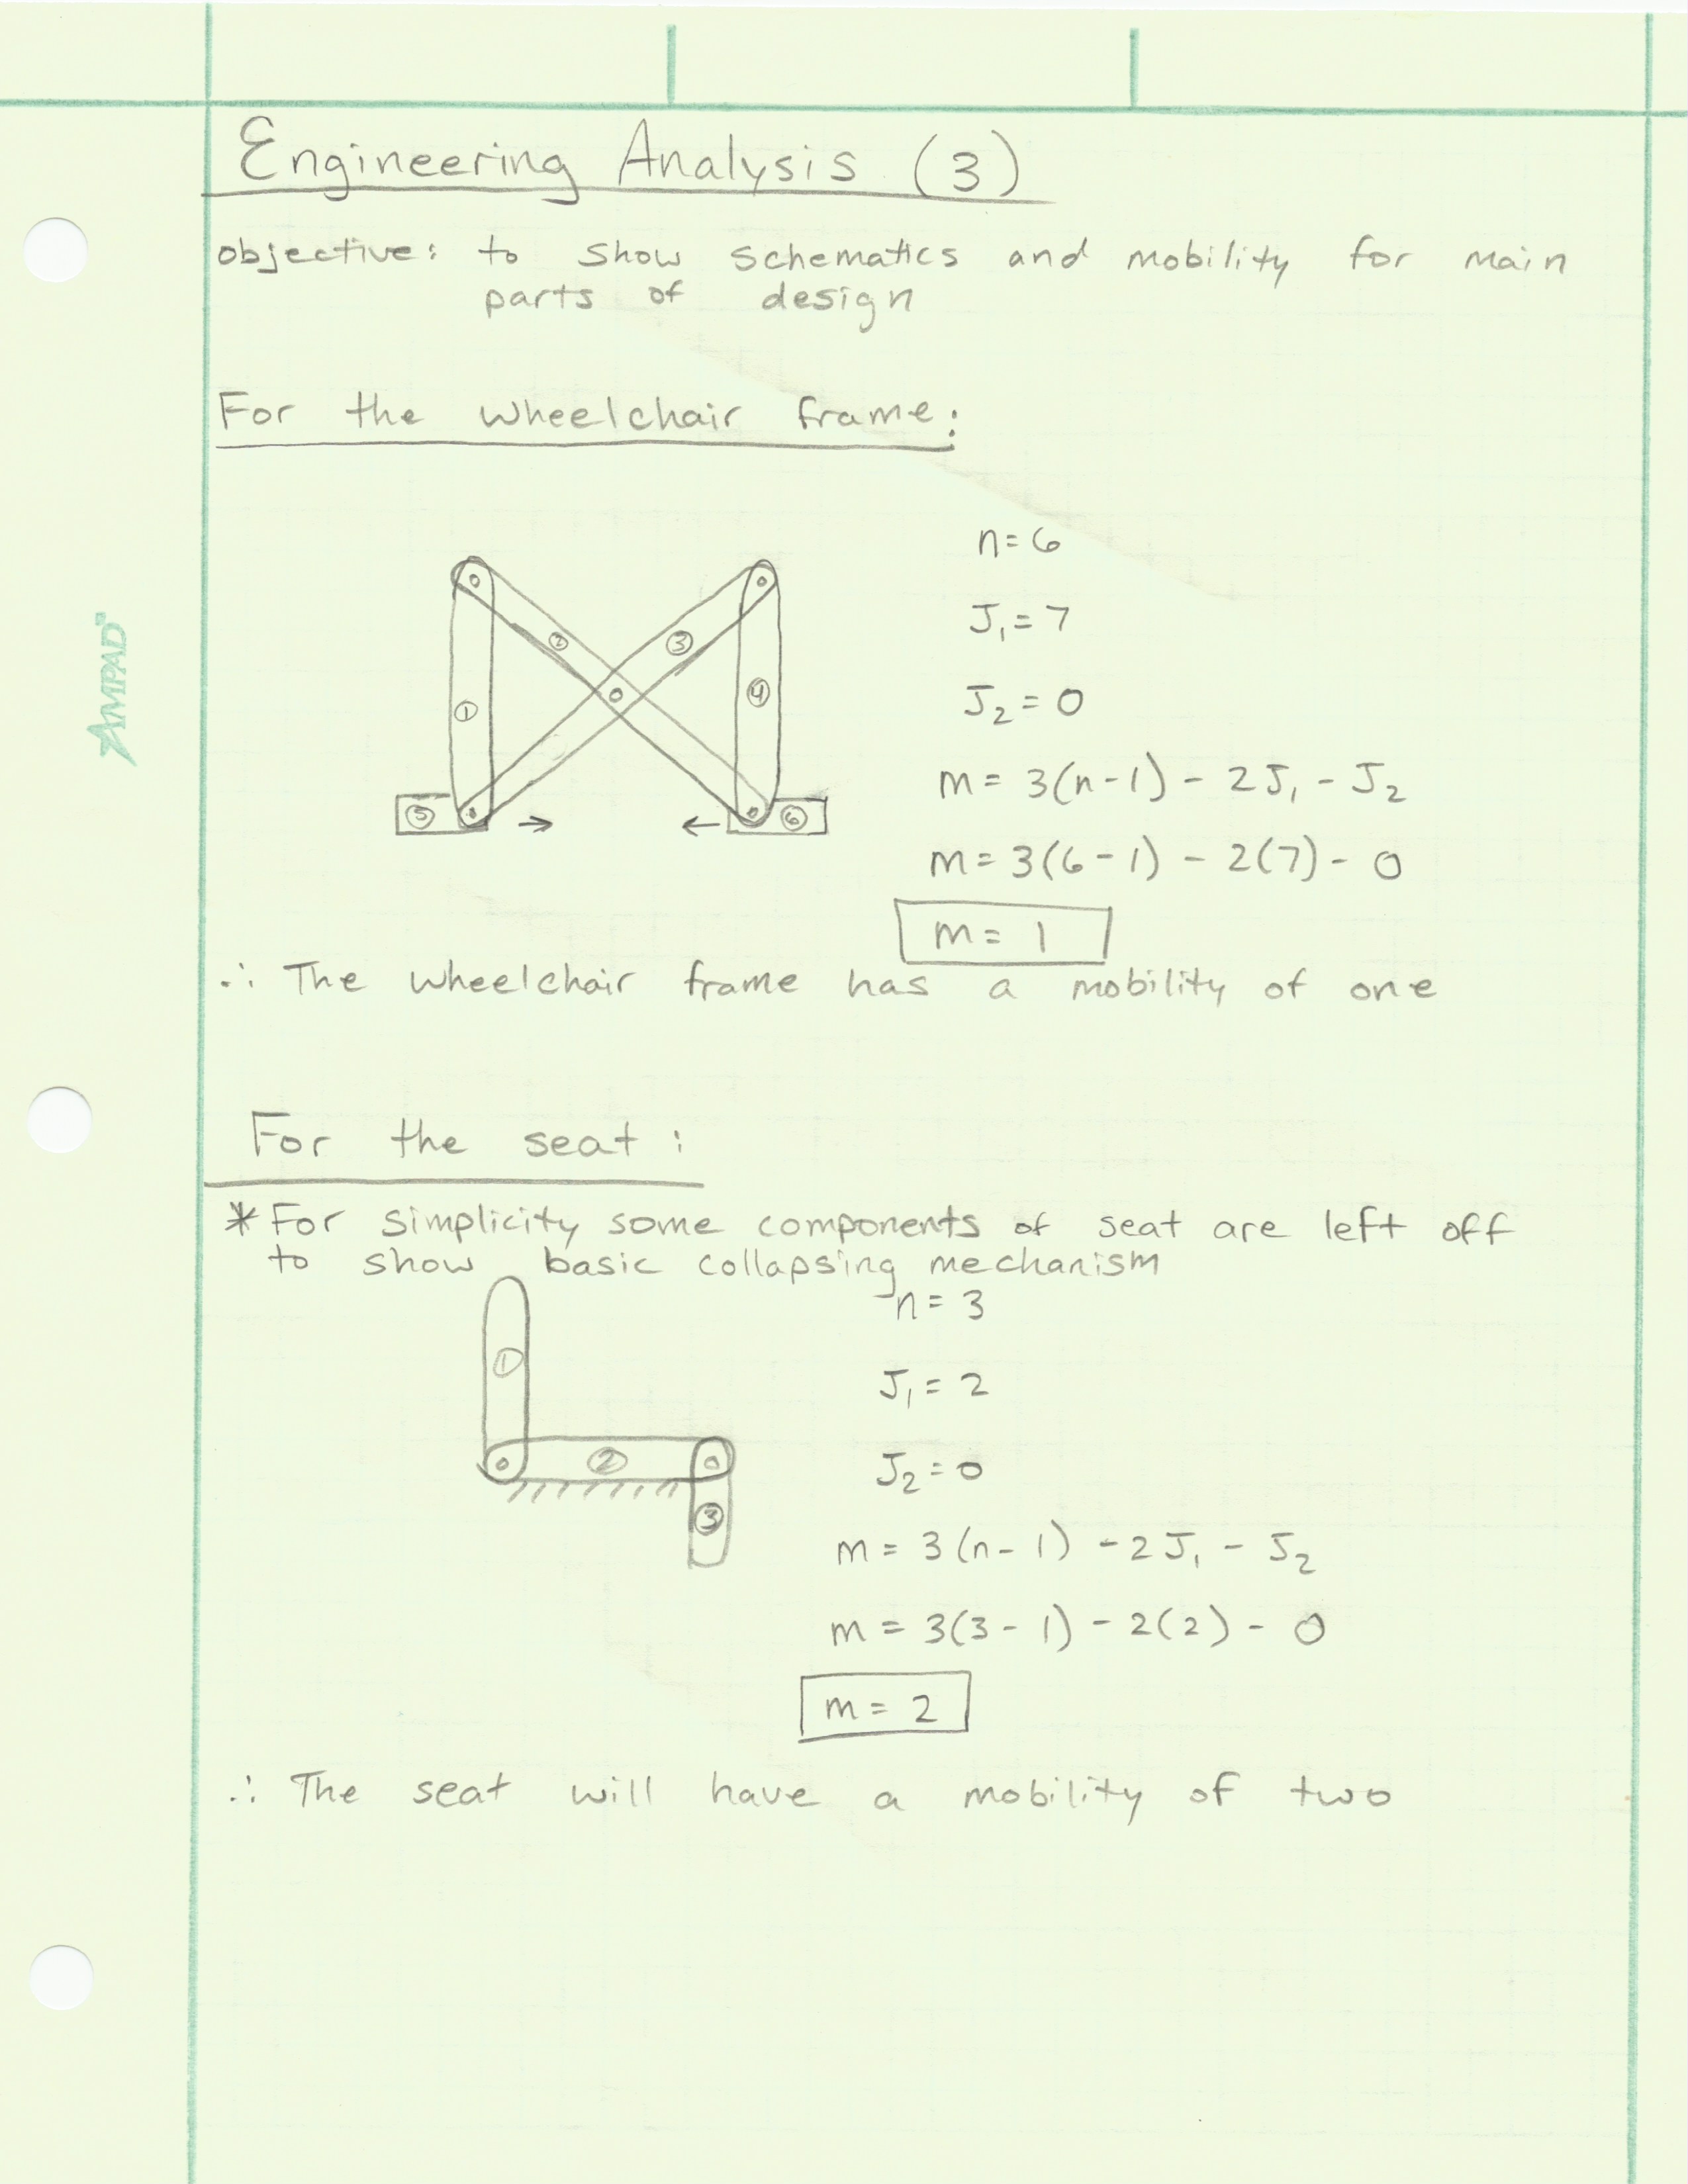 Engineering Analysis (3)
objective: to show schematics and mobility for main
parts of design
For the wheelchair frame:
n = 6
J₁ = 7
J₂ = 0
m = 3(n-1) - 2J₁ - J₂
m = 3(6-1) - 2(7) - 0
m = 1
① ② ③ ④ ⑤ ⑥
∴ The wheelchair frame has a mobility of one
AMPAD
For the seat:
* For simplicity some components of seat are left off
to show basic collapsing mechanism
n = 3
J₁ = 2
J₂ = 0
m = 3(n-1) - 2J₁ - J₂
m = 3(3-1) - 2(2) - 0
m = 2
① ② ③
∴ The seat will have a mobility of two